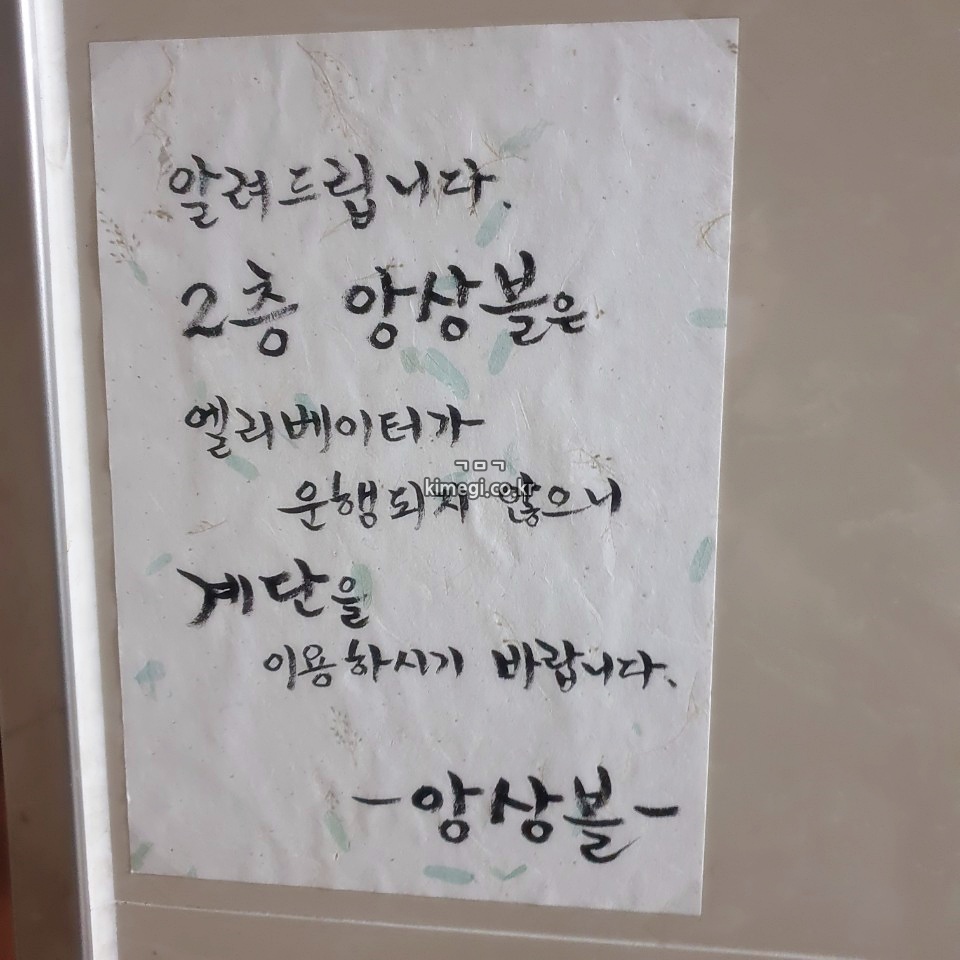 알려드립니다.
2층 앙상블은
엘리베이터가
ㄱㅁㄱ
kimegi.co.kr
운행되지 않으니
계단을
이용하시기 바랍니다.
-앙상블-